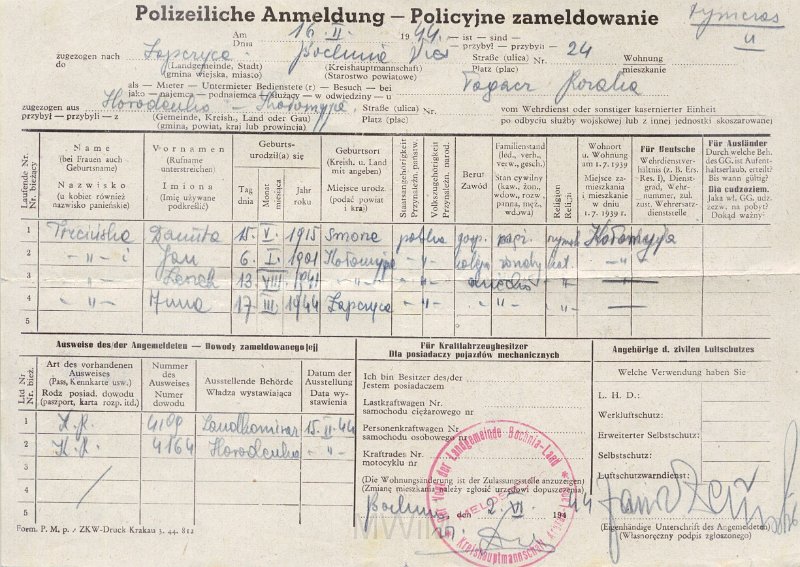 Polizeiliche Anmeldung – Policyjne zameldowanie
Am
Dnia 16. II. 1944. — ist — sind —
zugezogen nach Łapczyca Bochnia — przybył - przybyli - 24
do (Landgemeinde, Stadt) (Kreishauptmannschaft) Straße (ulica) Nr. Wohnung
gmina wiejska, miasto) (Starostwo powiatowe) Platz (plac) mieszkanie
als — Mieter — Untermieter Bedienstete (r) — Besuch — bei
jako — najemca — podnajemca — służący — w odwiedziny — u
zugezogen aus Horodenka - Kołomyja Straße (ulica) Nr. vom Wehrdienst oder sonstiger kasernierter Einheit
przybył — przybyli — z (Gemeinde, Kreish., Land oder Gau) Platz (plac) po odbyciu służby wojskowej lub z innej jednostki skoszarowanej
(gmina, powiat, kraj lub prowincja)
Laufende Nr.
Nr. bieżący
Name
(bei Frauen auch Geburtsname)
Nazwisko
(u kobiet również nazwisko panieńskie)
Vornamen
(Rufname unterstreichen)
Imiona
(Imię używane podkreślić)
Geburts-
urodził(a) się
Tag
dnia
Monat
miesiąca
Jahr
roku
Geburtsort
(Kreish. u. Land mit angeben)
Miejsce urodz.
(podać powiat i kraj)
Staatsangehörigkeit
Przynależn. państw.
Volkszugehörigkeit
Przynależn. narod.
Beruf
Zawód
Familienstand
(led., verh., verw., gesch.)
Stan cywilny
(kaw., żon., wdow., rozw., panna, męż., wdowa)
Religion
Religii
Wohnort
u. Wohnung
am 1. 7. 1939
Miejsce za-
mieszkania i
mieszkanie
w dniu
1. 7. 1939 r.
Für Deutsche
Wehrdienstver-
hältnis (z. B. Ers.
Res. I), Dienst-
grad, Wehr-
nummer, zul.
zust. Wehrersatz-
dienststelle
Für Ausländer
Durch welche Beh.
des GG. ist Aufent-
haltserlaub. erteilt?
Bis wann gültig?
Dla cudzoziem.
Jaka wł. GG. udz.
zezw. na pobyt?
Dokąd ważny?
1 Danuta 15 V. 1915 polska Kołomyja
2 — „ — Jan 6. I. 1901 Kołomyja — „ — — „ —
3 — „ — 13 VIII 1941 — „ — — „ —
4 — „ — Anna 17 III 1944 Łapczyca — „ — — „ —
5
Ausweise des/der Angemeldeten — Dowody zameldowanego[ej]
Lfd Nr
Nr. bież.
Art des vorhandenen
Ausweises
(Pass, Kennkarte usw.)
Rodz posiad. dowodu
(paszport, karta rozp. itd.)
Nummer
des
Ausweises
Numer
dowodu
Ausstellende Behörde
Władza wystawiająca
Datum der
Ausstellung
Data wy-
stawienia
1 K. K. Landkomisar 15. II 44
2 K. K. 4164 Horodenka — „ —
3
4
5
Für Kraftfahrzeugbesitzer
Dla posiadaczy pojazdów mechanicznych
Ich bin Besitzer des/der
Jestem posiadaczem
Lastkraftwagen Nr.
samochodu ciężarowego nr
Personenkraftwagen Nr.
samochodu osobowego nr
Kraftrades Nr.
motocyklu nr
(Die Wohnungsänderung ist der Zulassungsstelle anzuzeigen)
(Zmianę mieszkania należy zgłosić urzędowi dopuszczenia)
Bochnia den 2. VI. 1944
Angehörige d. zivilen Luftschutzes
Welche Verwendung haben Sie
L. H. D.:
Werkluftschutz:
Erweiterter Selbstschutz:
Selbstschutz:
Luftschutzwarndienst:
(Eigenhändige Unterschrift des Angemeldeten)
(Własnoręczny podpis zgłoszonego)
der Landgemeinde Bochnia-Land
Kreishauptmannschaft
Form. P. M. p. / ZKW-Druck Krakau 3. 44. 812